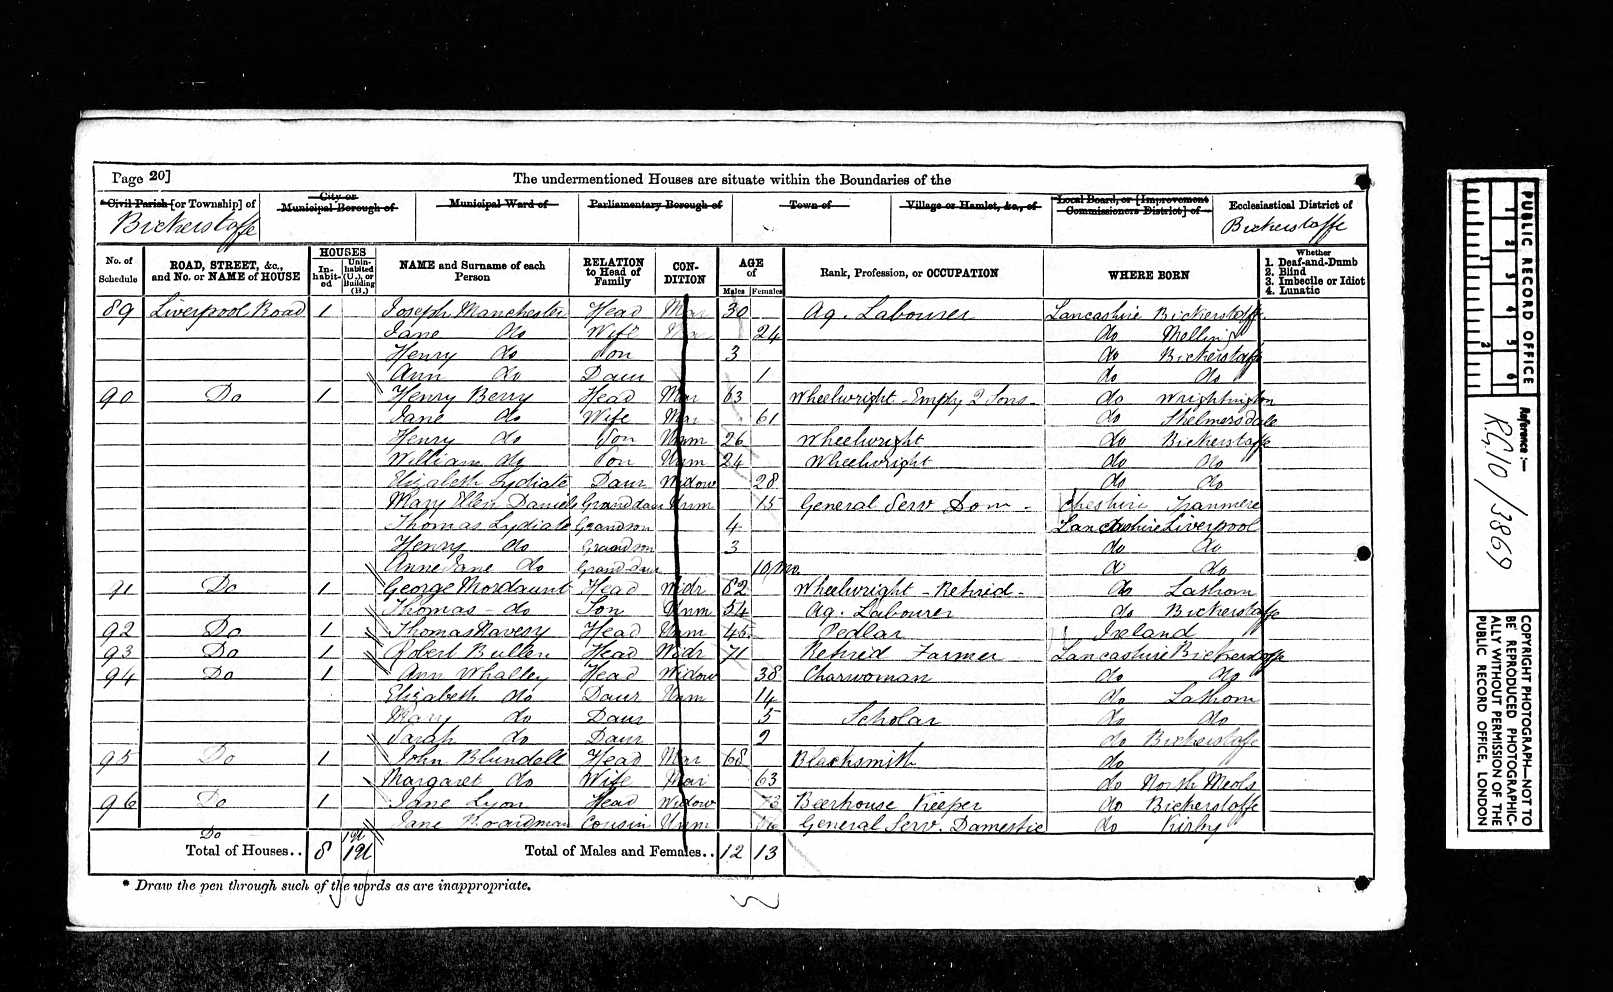 Page 20]
The undermentioned Houses are situate within the Boundaries of the
* Civil Parish [or Township] of
City or Municipal Borough of
Municipal Ward of
Parliamentary Borough of
Town of
Village or Hamlet, &c., of
Local Board, or [Improvement Commissioners District] of
Ecclesiastical District of
Bickerstaffe
Bickerstaffe
No. of Schedule
ROAD, STREET, &c., and No. or NAME of HOUSE
HOUSES
In-habit-ed
Unin-habited (U.), or Building (B.)
NAME and Surname of each Person
RELATION to Head of Family
CON-DITION
AGE of
Males
Females
Rank, Profession, or OCCUPATION
WHERE BORN
Whether
1. Deaf-and-Dumb
2. Blind
3. Imbecile or Idiot
4. Lunatic
89 Liverpool Road 1 Joseph Manchester Head Mar 30 Ag. Labourer Lancashire Bickerstaffe
Jane do Wife Mar 24 do Melling
Henry do Son 3 do Bickerstaffe
Ann do Daur 1 do do
90 Do 1 Henry Berry Head Mar 63 Wheelwright - Empy 2 Sons - do Wrightington
Jane do Wife Mar 61 do Skelmersdale
Henry do Son Unm 26 Wheelwright do Bickerstaffe
William do Son Unm 24 Wheelwright do do
Elizabeth Lydiate Daur Widow 28 do do
Mary Ellen Daniels Granddaur Unm 15 General Serv Dom - Cheshire Tranmere
Thomas Lydiate Grandson 4 Lancashire Liverpool
Henry do Grandson 3 do do
Anne Jane do Grand-daur 10 Mo do do
91 Do 1 George Mordaunt Head Widr 82 Wheelwright - Retired - do Lathom
Thomas - do Son Unm 54 Ag. Labourer do Bickerstaffe
92 Do 1 Thomas Navesy Head Unm 45 Pedlar Ireland
93 Do 1 Robert Bullen Head Widr 71 Retired Farmer Lancashire Bickerstaffe
94 Do 1 Ann Whalley Head Widow 38 Charwoman do do
Elizabeth do Daur Unm 14 do Lathom
Mary do Daur 5 Scholar do do
Sarah do Daur 2 do Bickerstaffe
95 Do 1 John Blundell Head Mar 68 Blacksmith do
Margaret do Wife Mar 63 do North Meols
96 Do 1 Jane Lyon Head Widow 73 Beerhouse Keeper do Bickerstaffe
Do Jane Boardman Cousin Unm General Serv. Domestic do Kirby
Total of Houses.. 8
Total of Males and Females.. 12 13
* Draw the pen through such of the words as are inappropriate.
PUBLIC RECORD OFFICE
1 2 3 4 5 6
1 2
Reference :—
RG10/3869
COPYRIGHT PHOTOGRAPH—NOT TO
BE REPRODUCED PHOTOGRAPHIC-
ALLY WITHOUT PERMISSION OF THE
PUBLIC RECORD OFFICE, LONDON